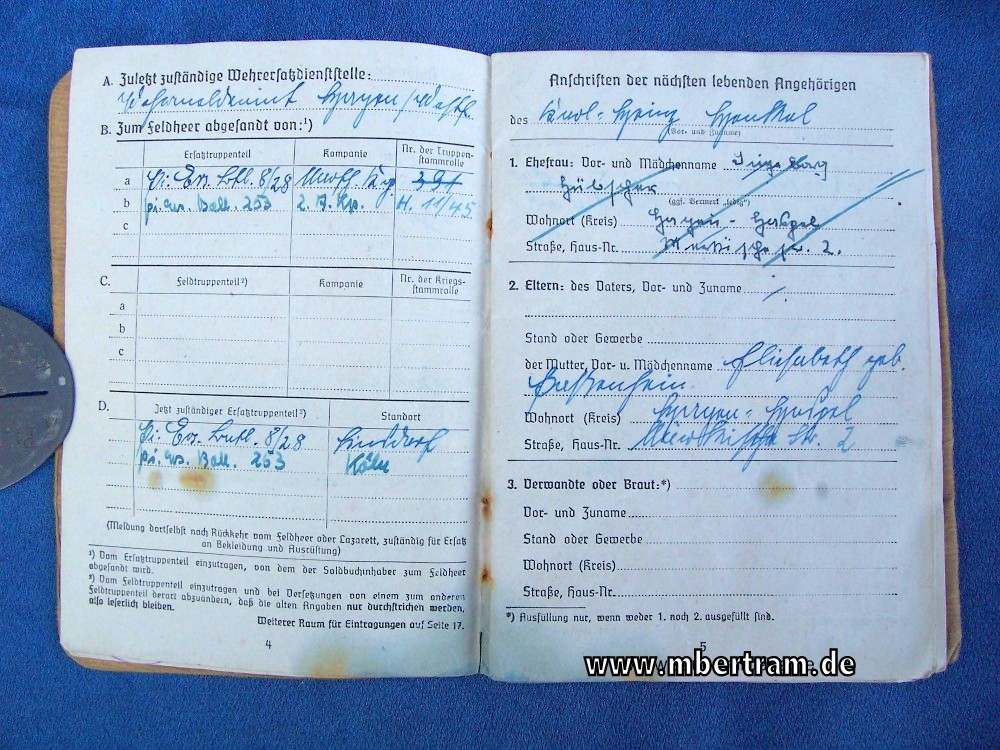 A. Zuletzt zuständige Wehrersatzdienststelle:
Wehrmeldeamt Hagen/Westf.
B. Zum Feldheer abgesandt von:¹)
Ersatztruppenteil Kompanie Nr. der Truppenstammrolle
a Pi. Ers. Batl. 8/28 391
b Pi. Ers. Batl. 253 2. H. 11/45
c
C. Feldtruppenteil²) Kompanie Nr. der Kriegsstammrolle
a
b
c
D. Jetzt zuständiger Ersatztruppenteil²) Standort
Pi. Ers. Batl. 8/28
Pi. Ers. Batl. 253 Köln
(Meldung dortselbst nach Rückkehr vom Feldheer oder Lazarett, zuständig für Ersatz
an Bekleidung und Ausrüstung)
¹) Vom Ersatztruppenteil einzutragen, von dem der Soldbuchinhaber zum Feldheer
abgesandt wird.
²) Vom Feldtruppenteil einzutragen und bei Versetzungen von einem zum anderen
Feldtruppenteil derart abzuändern, daß die alten Angaben nur durchstrichen werden,
also leserlich bleiben.
Weiterer Raum für Eintragungen auf Seite 17.
4
Anschriften der nächsten lebenden Angehörigen
des Karl-Heinz
(Vor- und Zuname)
1. Ehefrau: Vor- und Mädchenname Ingeborg
Hübscher
(ggf. Vermerk „ledig")
Wohnort (Kreis) Hagen - Haspe
Straße, Haus-Nr. 2.
2. Eltern: des Vaters, Vor- und Zuname
Stand oder Gewerbe
der Mutter, Vor- u. Mädchenname Elisabeth geb.
Wohnort (Kreis) Hagen-Haspe
Straße, Haus-Nr. Str. 2
3. Verwandte oder Braut:*)
Vor- und Zuname
Stand oder Gewerbe
Wohnort (Kreis)
Straße, Haus-Nr.
*) Ausfüllung nur, wenn weder 1. noch 2. ausgefüllt sind.
5
www.mbertram.de